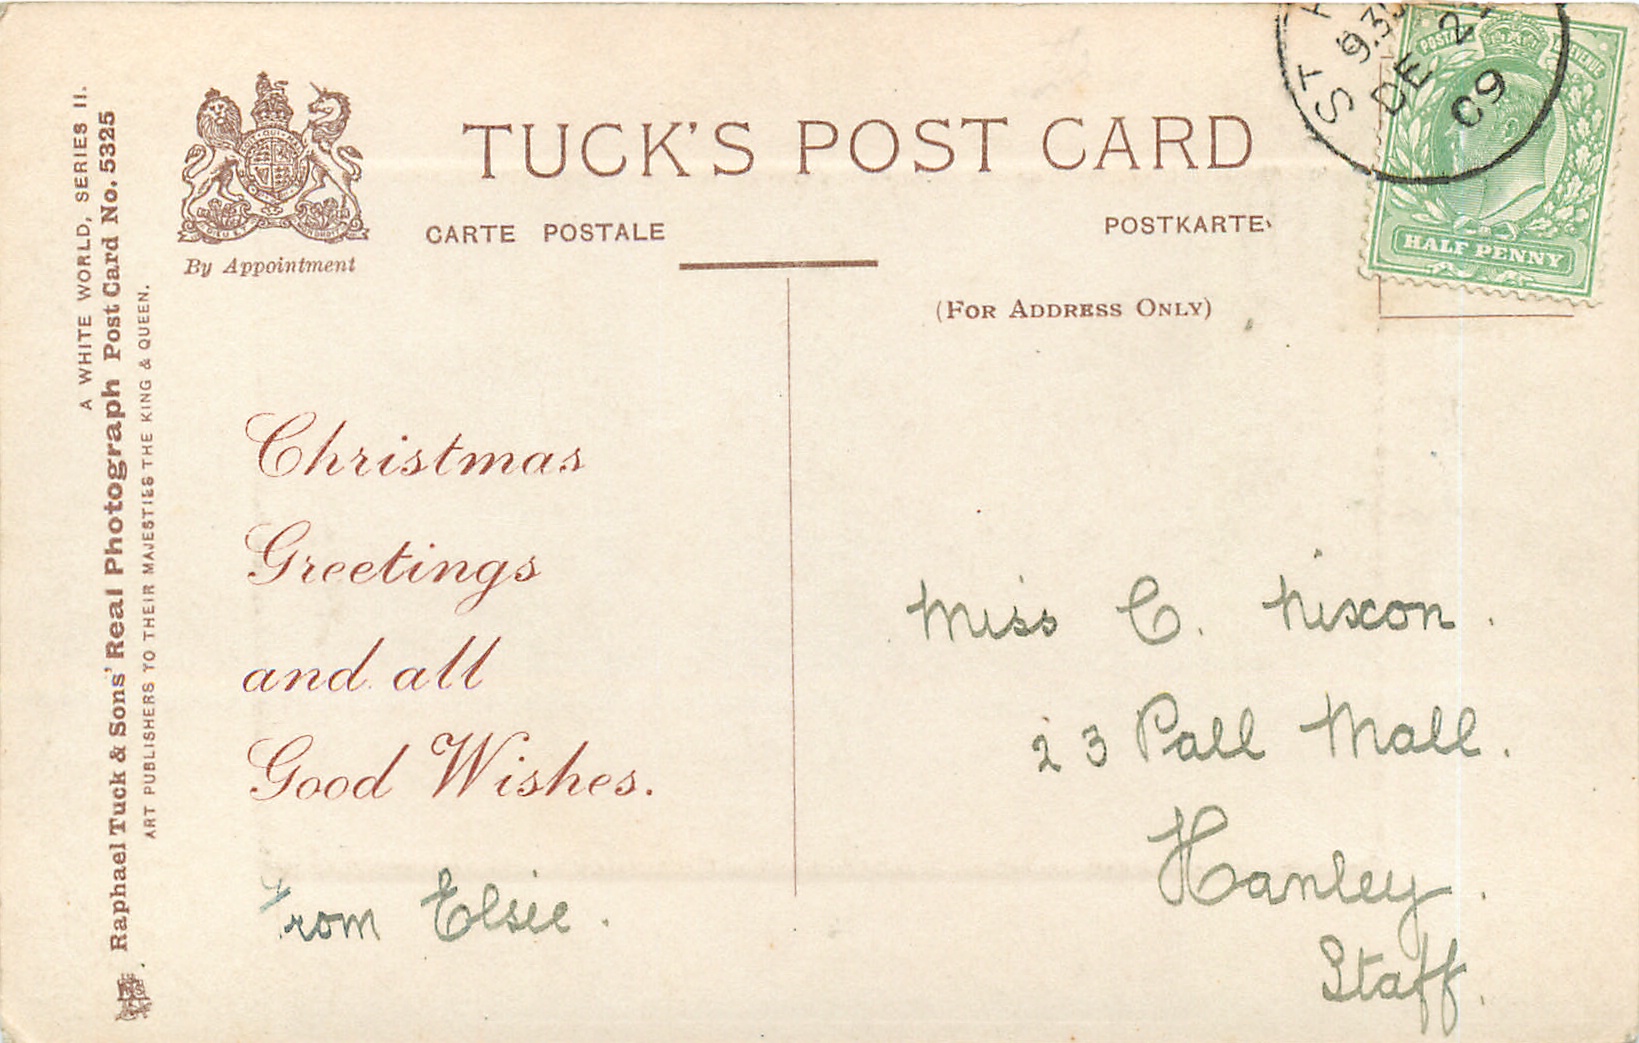 A WHITE WORLD, SERIES II.
Raphael Tuck & Sons' Real Photograph Post Card No. 5325
ART PUBLISHERS TO THEIR MAJESTIES THE KING & QUEEN.
By Appointment
TUCK'S POST CARD
CARTE POSTALE
POSTKARTE
(FOR ADDRESS ONLY)
ST
9.30
DE 2
09
POSTAGE REVENUE
HALF PENNY
Christmas
Greetings
and all
Good Wishes.
From Elsie.
Miss C. Nixon.
23 Pall Mall.
Hanley.
Staff.